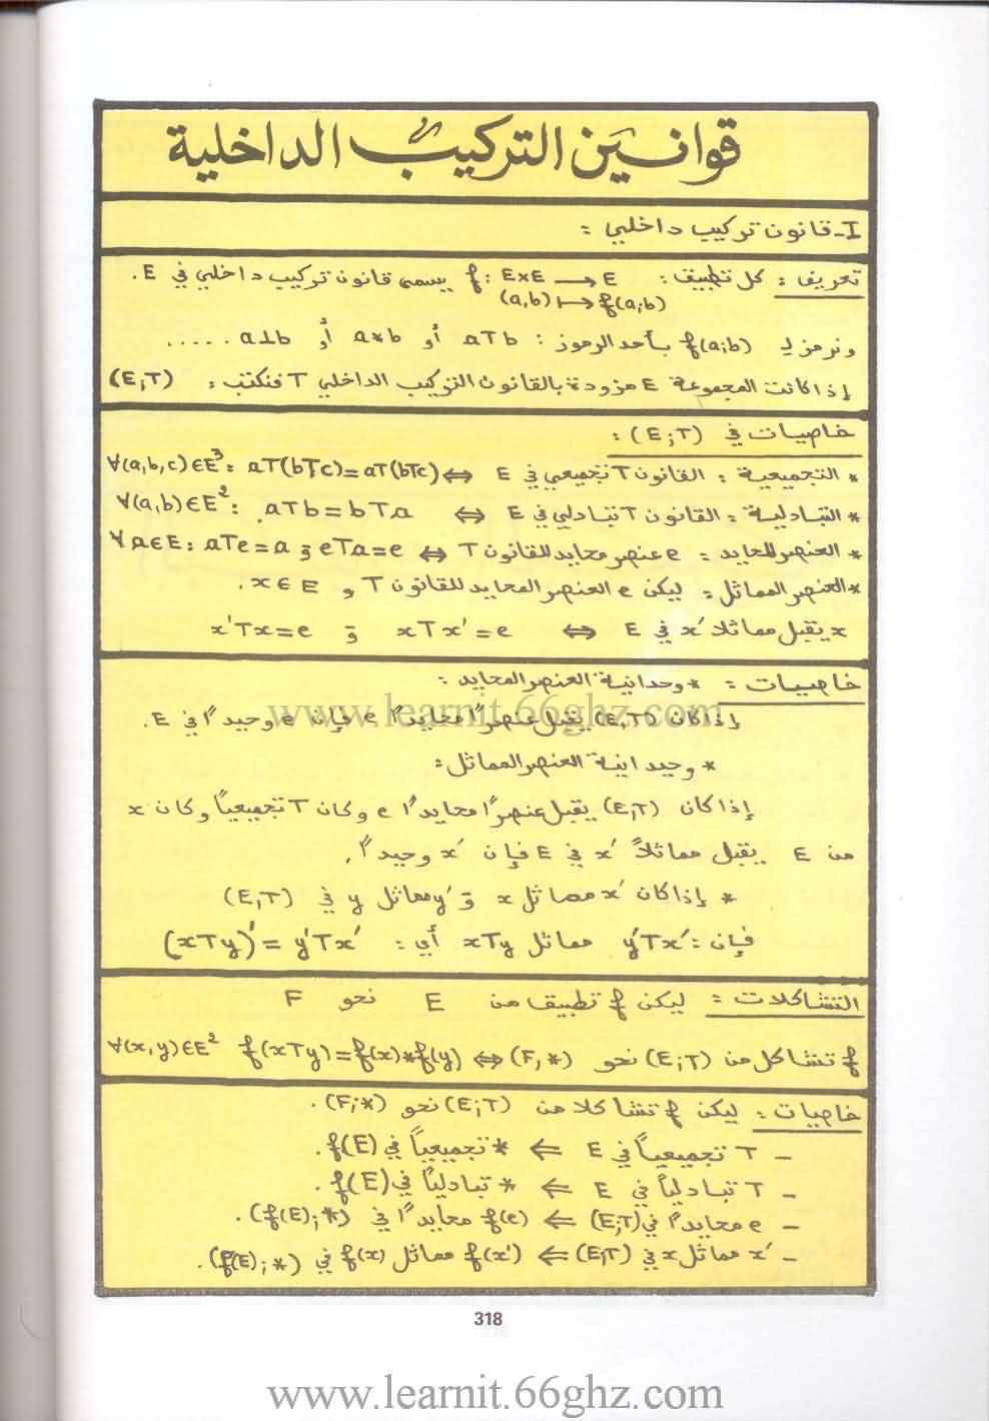 قوانين التركيب الداخلية
I- قانون تركيب داخلي :
تعريف : كل تطبيق : f : E×E → E يسمى قانون تركيب داخلي في E.
(a,b) ↦ f(a;b)
ونرمز لـ f(a;b) بأحد الرموز : aTb أو a*b أو a⊥b .....
إذا كانت المجموعة E مزودة بالقانون التركيب الداخلي T فنكتب : (E;T)
خاصيات في (E;T) :
* التجميعية : القانون T تجميعي في E ⇔ ∀(a,b,c)∈E³ : aT(bTc)=aT(bTc)
* التبادلية : القانون T تبادلي في E ⇔ ∀(a,b)∈E² : aTb=bTa
* العنصر المحايد : e عنصر محايد للقانون T ⇔ ∀a∈E : aTe=a و eTa=e
* العنصر المماثل : ليكن e العنصر المحايد للقانون T و x∈E.
x يقبل مماثلا x' في E ⇔ xTx'=e و x'Tx=e
خاصيات : * وحدانية العنصر المحايد :
إذا كان (E,T) يقبل عنصرًا محايدًا e فإن e وحيدًا في E.
* وحيدانية العنصر المماثل :
إذا كان (E,T) يقبل عنصرًا محايدًا e وكان T تجميعيًا وكان x
من E يقبل مماثلاً x' في E فإن x' وحيدًا.
* إذا كان x' مماثل x و y' مماثل y في (E,T)
فإن : y'Tx' مماثل xTy أي : (xTy)' = y'Tx'
التشاكلات : ليكن f تطبيق من E نحو F
f تشاكل من (E;T) نحو (F,*) ⇔ ∀(x,y)∈E² f(xTy)=f(x)*f(y)
خاصيات : ليكن f تشاكلا من (E;T) نحو (F;*).
- T تجميعياً في E ⇒ * تجميعياً في f(E).
- T تبادلياً في E ⇒ * تبادلياً في f(E).
- e محايدًا في (E;T) ⇒ f(e) محايدًا في (f(E);*).
- x' مماثل x في (E,T) ⇒ f(x') مماثل f(x) في (f(E);*).
www.learnit.66ghz.com
318
www.learnit.66ghz.com